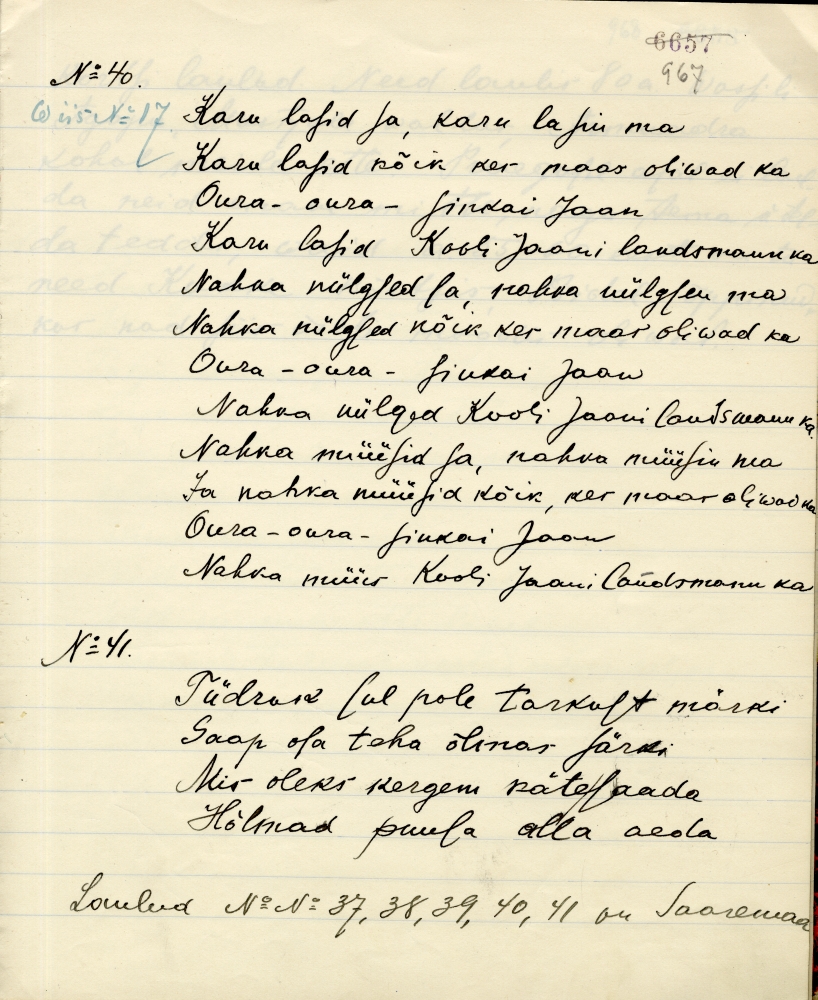 6657
967
№ 40.
Wiis № 17
Karu lasid sa, karu lasin ma
Karu lasid kõik kes maas oliwad ka
Oura - oura - sinkai Jaan
Karu lasid Kooli Jaani landsmann ka
Nahka nülgsed sa, nahka nülgsen ma
Nahka nülgsed kõik kes maas oliwad ka
Oura - oura - sinkai Jaan
Nahka nülged Kooli Jaani landsmann ka.
Nahka müüsid sa, nahka müüsin ma
Ja nahka müüsid kõik, kes maas oliwad ka
Oura - oura - sinkai Jaan
Nahka müüs Kooli Jaani landsmann ka
№ 41.
Tüdruk sul pole tarkust märki
Saap osa teha õlmas särki
Mis oleks kergem kätesaada
Hõlmad puusa alla aeda
Laulud № № 37, 38, 39, 40, 41 on Saaremaa